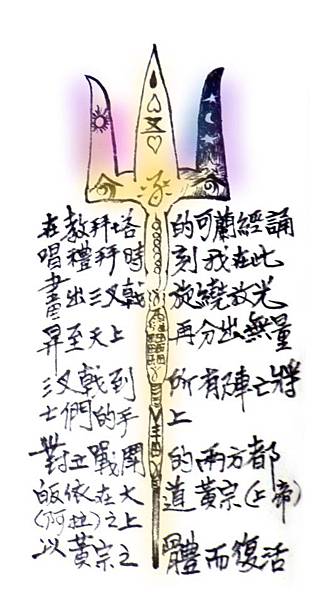 在教拜塔的可蘭經誦
唱禮拜時刻我在此
畫出三叉戟旋繞放光
昇至天上再分出無量
三叉戟到所有陣亡將
士們的手上
對立戰鬥的兩方都
皈依在大道黃宗(上帝)
(阿拉)之上
以黃宗之體而復活